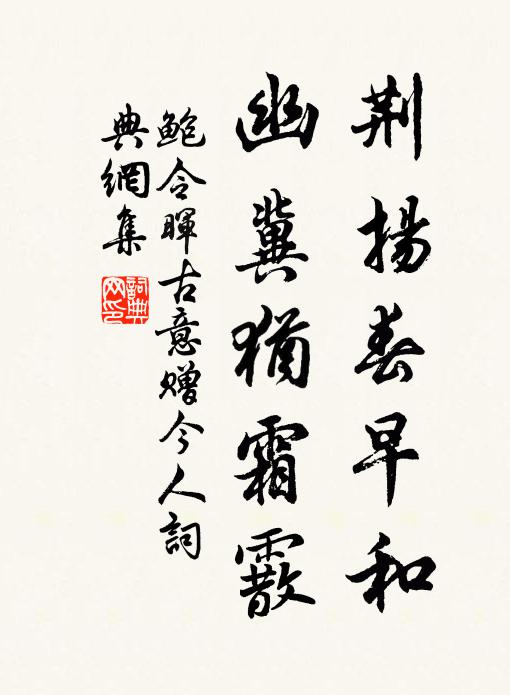 荆揚春早和
幽冀猶霜霰
鲍令暉古意赠今人詞
典網集
詞典
网印